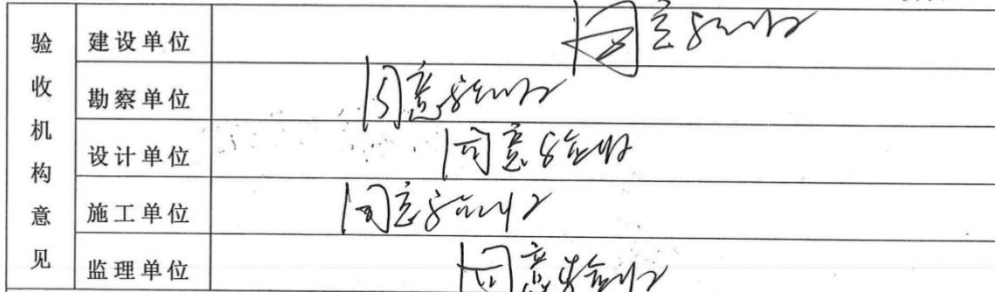 验收机构意见
建设单位 同意验收
勘察单位 同意验收
设计单位 同意验收
施工单位 同意验收
监理单位 同意验收